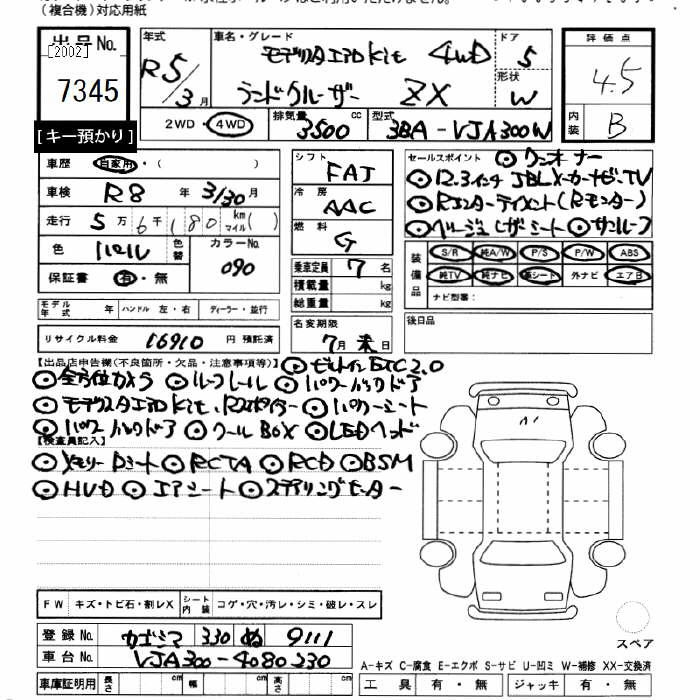 (複合機)対応用紙
出品No.
[2002]
7345
[キー預かり]
年式 R5/3月
車名・グレード モデリスタエアロKit 4WD
ランドクルーザー ZX
ドア 5
形状 W
評価点 4.5
内装 B
2WD・4WD 排気量 3500 cc 型式 3BA-VJA300W
車歴 自家用・( )
車検 R8年 3/30月
走行 5万6千180 km マイル( )
色 パール 色替 カラーNo. 090
保証書 有・無
モデル年式 年 ハンドル 左・右 ディーラー・並行
リサイクル料金 16910 円 預託済
シフト FAT
冷房 AAC
燃料 G
乗車定員 7 名
積載量 kg
総重量 kg
名変期限 7月末日
セールスポイント ⊙ワンオーナー
⊙12.3インチJBLメーカーナビ・TV
⊙Rエンターテイメント(Rモニター)
⊙ベージュレザーシート ⊙サンルーフ
装備品 S/R 純A/W P/S P/W ABS
純TV 純ナビ 革シート 外ナビ エアB
ナビ型番:
後日品
【出品店申告欄(不良箇所・欠品・注意事項等)】 ⊙ビルトインETC2.0
⊙全方位カメラ ⊙ルーフレール ⊙パワーバックドア
⊙モデリスタエアロKit、Rスポイラー ⊙パワーシート
⊙パワーバックドア ⊙クールBOX ⊙LEDヘッド
【検査員記入】
⊙メモリーDシート ⊙RCTA ⊙RCD ⊙BSM
⊙HUD ⊙エアシート ⊙ステアリングヒーター
FW キズ・トビ石・割レX シート内装 コゲ・穴・汚レ・シミ・破レ・スレ
登録No. カゴシマ 330 ぬ 9111
車台No. VJA300-4080230
車庫証明用 長さ cm 幅 cm 高さ cm
スペア
A-キズ C-腐食 E-エクボ S-サビ U-凹ミ W-補修 XX-交換済
工具 有・無 ジャッキ 有・無